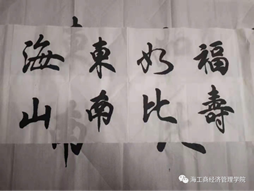 福如東海
壽比南山
海工商经济管理学院